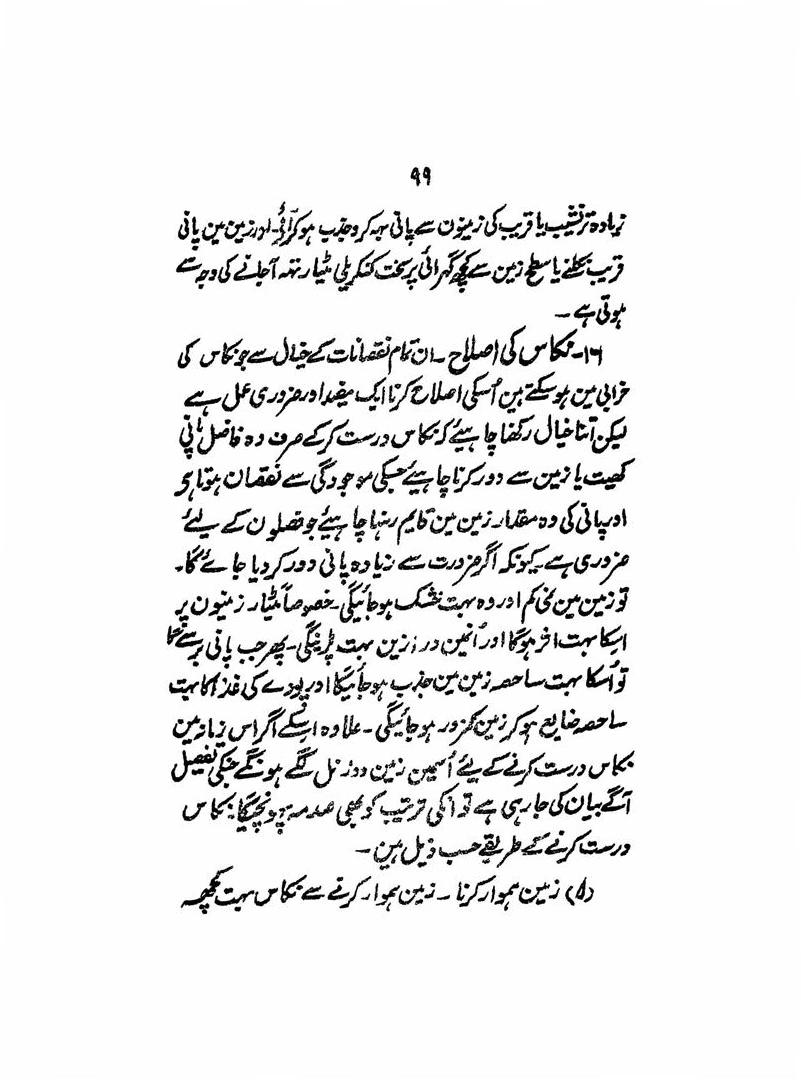 ۹۹
زیادہ تر نشیب یا قریب کی زمینون سے پانی بہہ کر و جذب ہو کر آئے۔ اور زمین مین پانی
قریب نکلنے یا سطح زمین سے کچھ گہرائی پر سخت کنکریلی مٹیار تہہ آجانے کی وجہ سے
ہوتی ہے۔
۱۶۔ نکاس کی اصلاح۔ ان تمام نقصانات کے خیال سے جو نکاس کی
خرابی مین ہو سکتے ہین اُسکی اصلاح کرنا ایک مفید اور ضروری عمل ہے
لیکن اتنا خیال رکھنا چاہیئے کہ نکاس درست کر کے صرف وہ فاضل پانی
کھیت یا زمین سے دور کرنا چاہیئے جسکی موجودگی سے نقصان ہوتا ہی
اور پانی کی وہ مقدار زمین مین قایم رہنا چاہیئے جو فصلون کے لیئے
ضروری ہے کیونکہ اگر ضرورت سے زیادہ پانی دور کر دیا جائے گا۔
تو زمین مین نمی کم اور وہ بہت خشک ہو جائیگی۔ خصوصاً مٹیار زمینون پر
اسکا بہت اثر ہوگا اور اُنمین درازین بہت پڑینگی۔ پھر جب پانی برسے گا
تو اُسکا بہت سا حصہ زمین مین جذب ہو جائیگا اور پودے کی غذا کا بہت
سا حصہ ضایع ہو کر زمین کمزور ہو جائیگی۔ علاوہ اسکے اگر اس زمانہ مین
نکاس درست کرنے کے لیئے اُسمین زمین دوز نل لگے ہونگے جنکی تفصیل
آگے بیان کی جا رہی ہے تو انکی ترتیب کو بھی صدمہ پہونچیگا۔ نکاس
درست کرنے کے طریقے حسب ذیل ہین۔
(۱) زمین ہموار کرنا۔ زمین ہموار کرنے سے نکاس بہت کچھہ